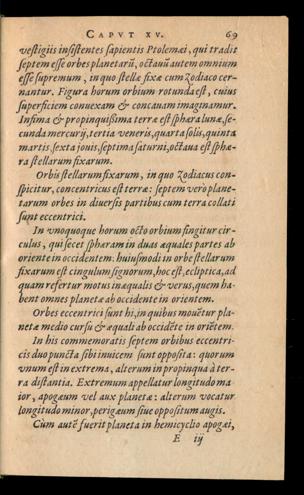 CAPVT XV. 69
vestigiis insistentes sapientis Ptolemæi, qui tradit
septem esse orbes planetarũ, octauũ autem omnium
esse supremum, in quo stellæ fixæ cum zodiaco cer-
nantur. Figura horum orbium rotunda est, cuius
superficiem conuexam & concauam imaginamur.
Infima & propinquißima terræ est sphæra lunæ, se-
cunda mercurij, tertia veneris, quarta solis, quinta
martis, sexta jouis, septima saturni, octaua est sphæ-
ra stellarum fixarum.
Orbis stellarum fixarum, in quo zodiacus con-
spicitur, concentricus est terræ: septem verò plane-
tarum orbes in diuersis partibus cum terra collati
sunt eccentrici.
In vnoquoque horum octo orbium fingitur cir-
culus, qui secet sphæram in duas æquales partes ab
oriente in occidentem: huiusmodi in orbe stellarum
fixarum est cingulum signorum, hoc est, ecliptica, ad
quam refertur motus inæqualis & verus, quem ha-
bent omnes planetæ ab occidente in orientem.
Orbes eccentrici sunt hi, in quibus mouẽtur pla-
netæ medio cursu & æquali ab occidẽte in oriẽtem.
In his commemoratis septem orbibus eccentri-
cis duo puncta sibi inuicem sunt opposita: quorum
vnum est in extrema, alterum in propinqua à ter-
ra distantia. Extremum appellatur longitudo ma-
ior, apogæum vel aux planetæ: alterum vocatur
longitudo minor, perigæum siue oppositum augis.
Cùm autẽ fuerit planeta in hemicyclio apogæi,
E iij